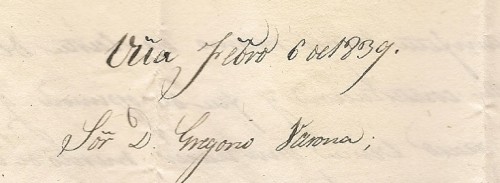 Vña Febro 6 de 1839.
Sõr D. Gregorio Varona;